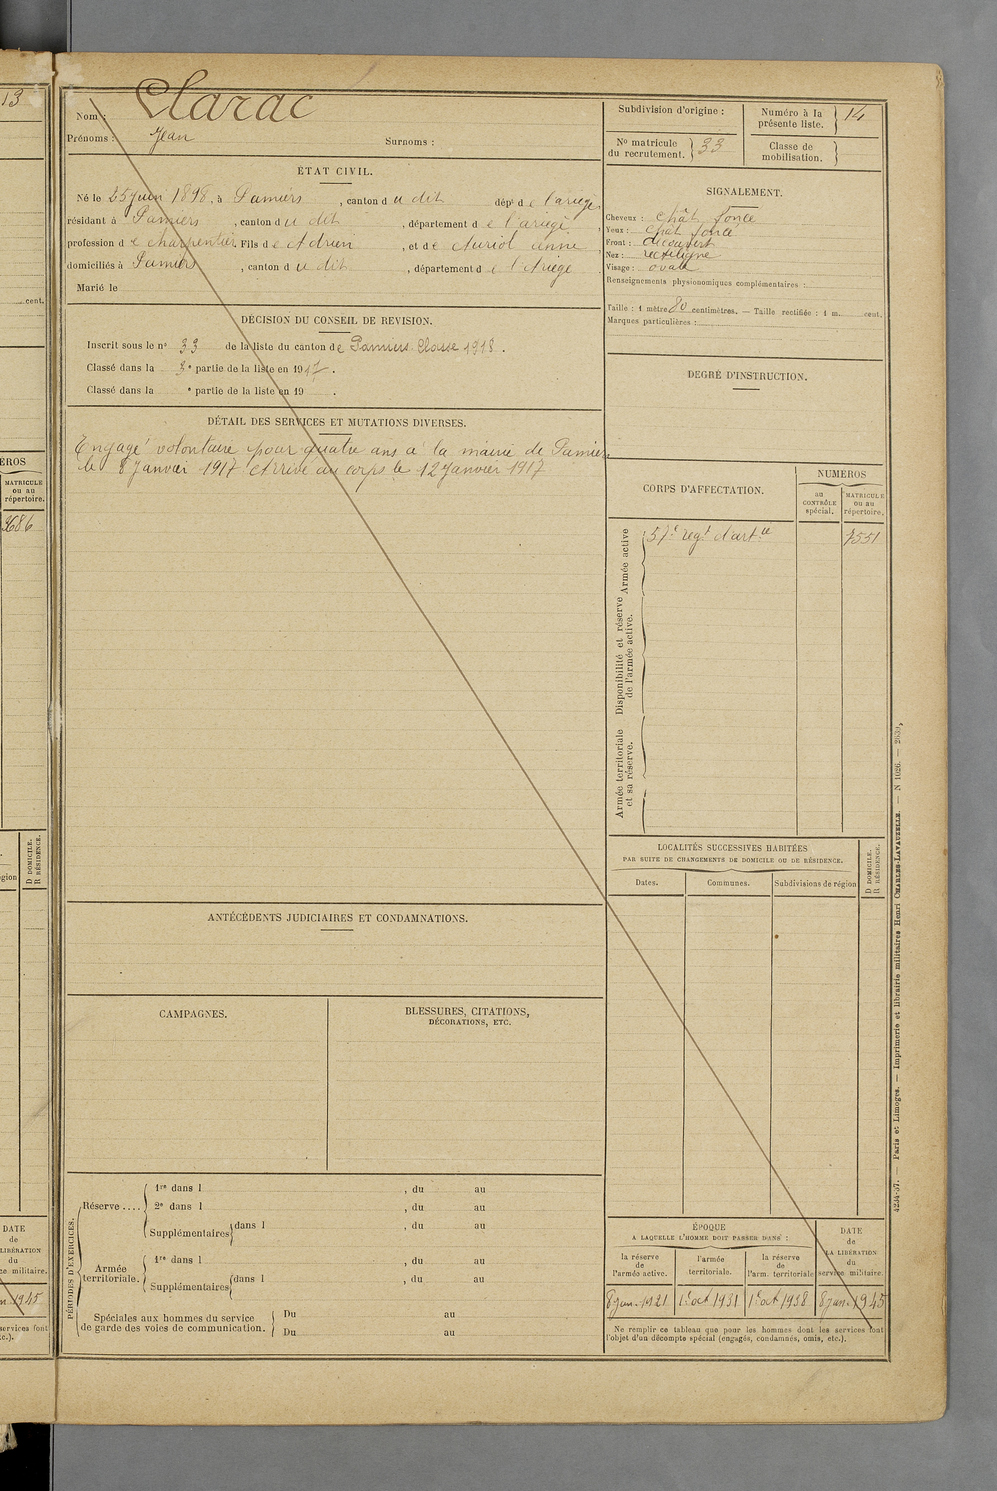 13
Nom : Clarac
Prénoms : Jean Surnoms :
ÉTAT CIVIL.
Né le 25 juin 1898, à Pamiers, canton du dit dépt de l'ariège,
résidant à Pamiers, canton du dit, département de l'ariège,
profession de charpentier Fils de Adrien, et de Auriol anne,
domiciliés à Pamiers, canton du dit, département de l'Ariège.
Marié le
DÉCISION DU CONSEIL DE REVISION.
Inscrit sous le no 33 de la liste du canton de Pamiers Classe 1918.
Classé dans la 3e partie de la liste en 1917.
Classé dans la e partie de la liste en 19 .
DÉTAIL DES SERVICES ET MUTATIONS DIVERSES.
Engagé volontaire pour quatre ans à la mairie de Pamiers
le 8 Janvier 1917 Arrivé au corps le 12 Janvier 1917
ANTÉCÉDENTS JUDICIAIRES ET CONDAMNATIONS.
CAMPAGNES.
BLESSURES, CITATIONS,
DÉCORATIONS, ETC.
PÉRIODES D'EXERCICES.
Réserve ....
1re dans l , du au
2e dans l , du au
Supplémentaires dans l , du au
Armée
territoriale.
1re dans l , du au
Supplémentaires dans l , du au
Spéciales aux hommes du service
de garde des voies de communication.
Du au
Du au
Subdivision d'origine :
Numéro à la
présente liste. 14
No matricule
du recrutement. 33
Classe de
mobilisation.
SIGNALEMENT.
Cheveux : chât foncé
Yeux : chat foncé
Front : découvert
Nez : rectiligne
Visage : ovale
Renseignements physionomiques complémentaires :
Taille : 1 mètre 80 centimètres. — Taille rectifiée : 1 m. cent.
Marques particulières :
DEGRÉ D'INSTRUCTION.
CORPS D'AFFECTATION.
NUMEROS
au
CONTRÔLE
spécial.
MATRICULE
ou au
répertoire.
Armée active
57e regt d'artie 7551
Disponibilité et réserve
de l'armée active.
Armée territoriale
et sa réserve.
LOCALITÉS SUCCESSIVES HABITÉES
PAR SUITE DE CHANGEMENTS DE DOMICILE OU DE RÉSIDENCE.
D DOMICILE.
R RÉSIDENCE.
Dates. Communes. Subdivisions de région
ÉPOQUE
A LAQUELLE L'HOMME DOIT PASSER DANS :
la réserve
de
l'armée active.
l'armée
territoriale.
la réserve
de
l'arm. territoriale
DATE
de
LA LIBÉRATION
du
service militaire.
8 jan. 1921 1er oct 1931 1er oct 1938 8 jan. 1945
Ne remplir ce tableau que pour les hommes dont les services font
l'objet d'un décompte spécial (engagés, condamnés, omis, etc.).
4234-37. — Paris et Limoges. — Imprimerie et librairie militaires Henri CHARLES-LAVAUZELLE. — N 1026.
cent.
MATRICULE
ou au
répertoire.
D DOMICILE.
R RÉSIDENCE.
DATE
de
LIBÉRATION
du
1945